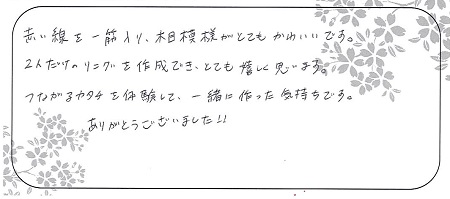 赤い線を一筋入り、木目模様がとてもかわいいです。
2人だけのリングを作成でき、とても嬉しく思います。
つながるカタチを体験して、一緒に作った気持ちです。
ありがとうございました!!